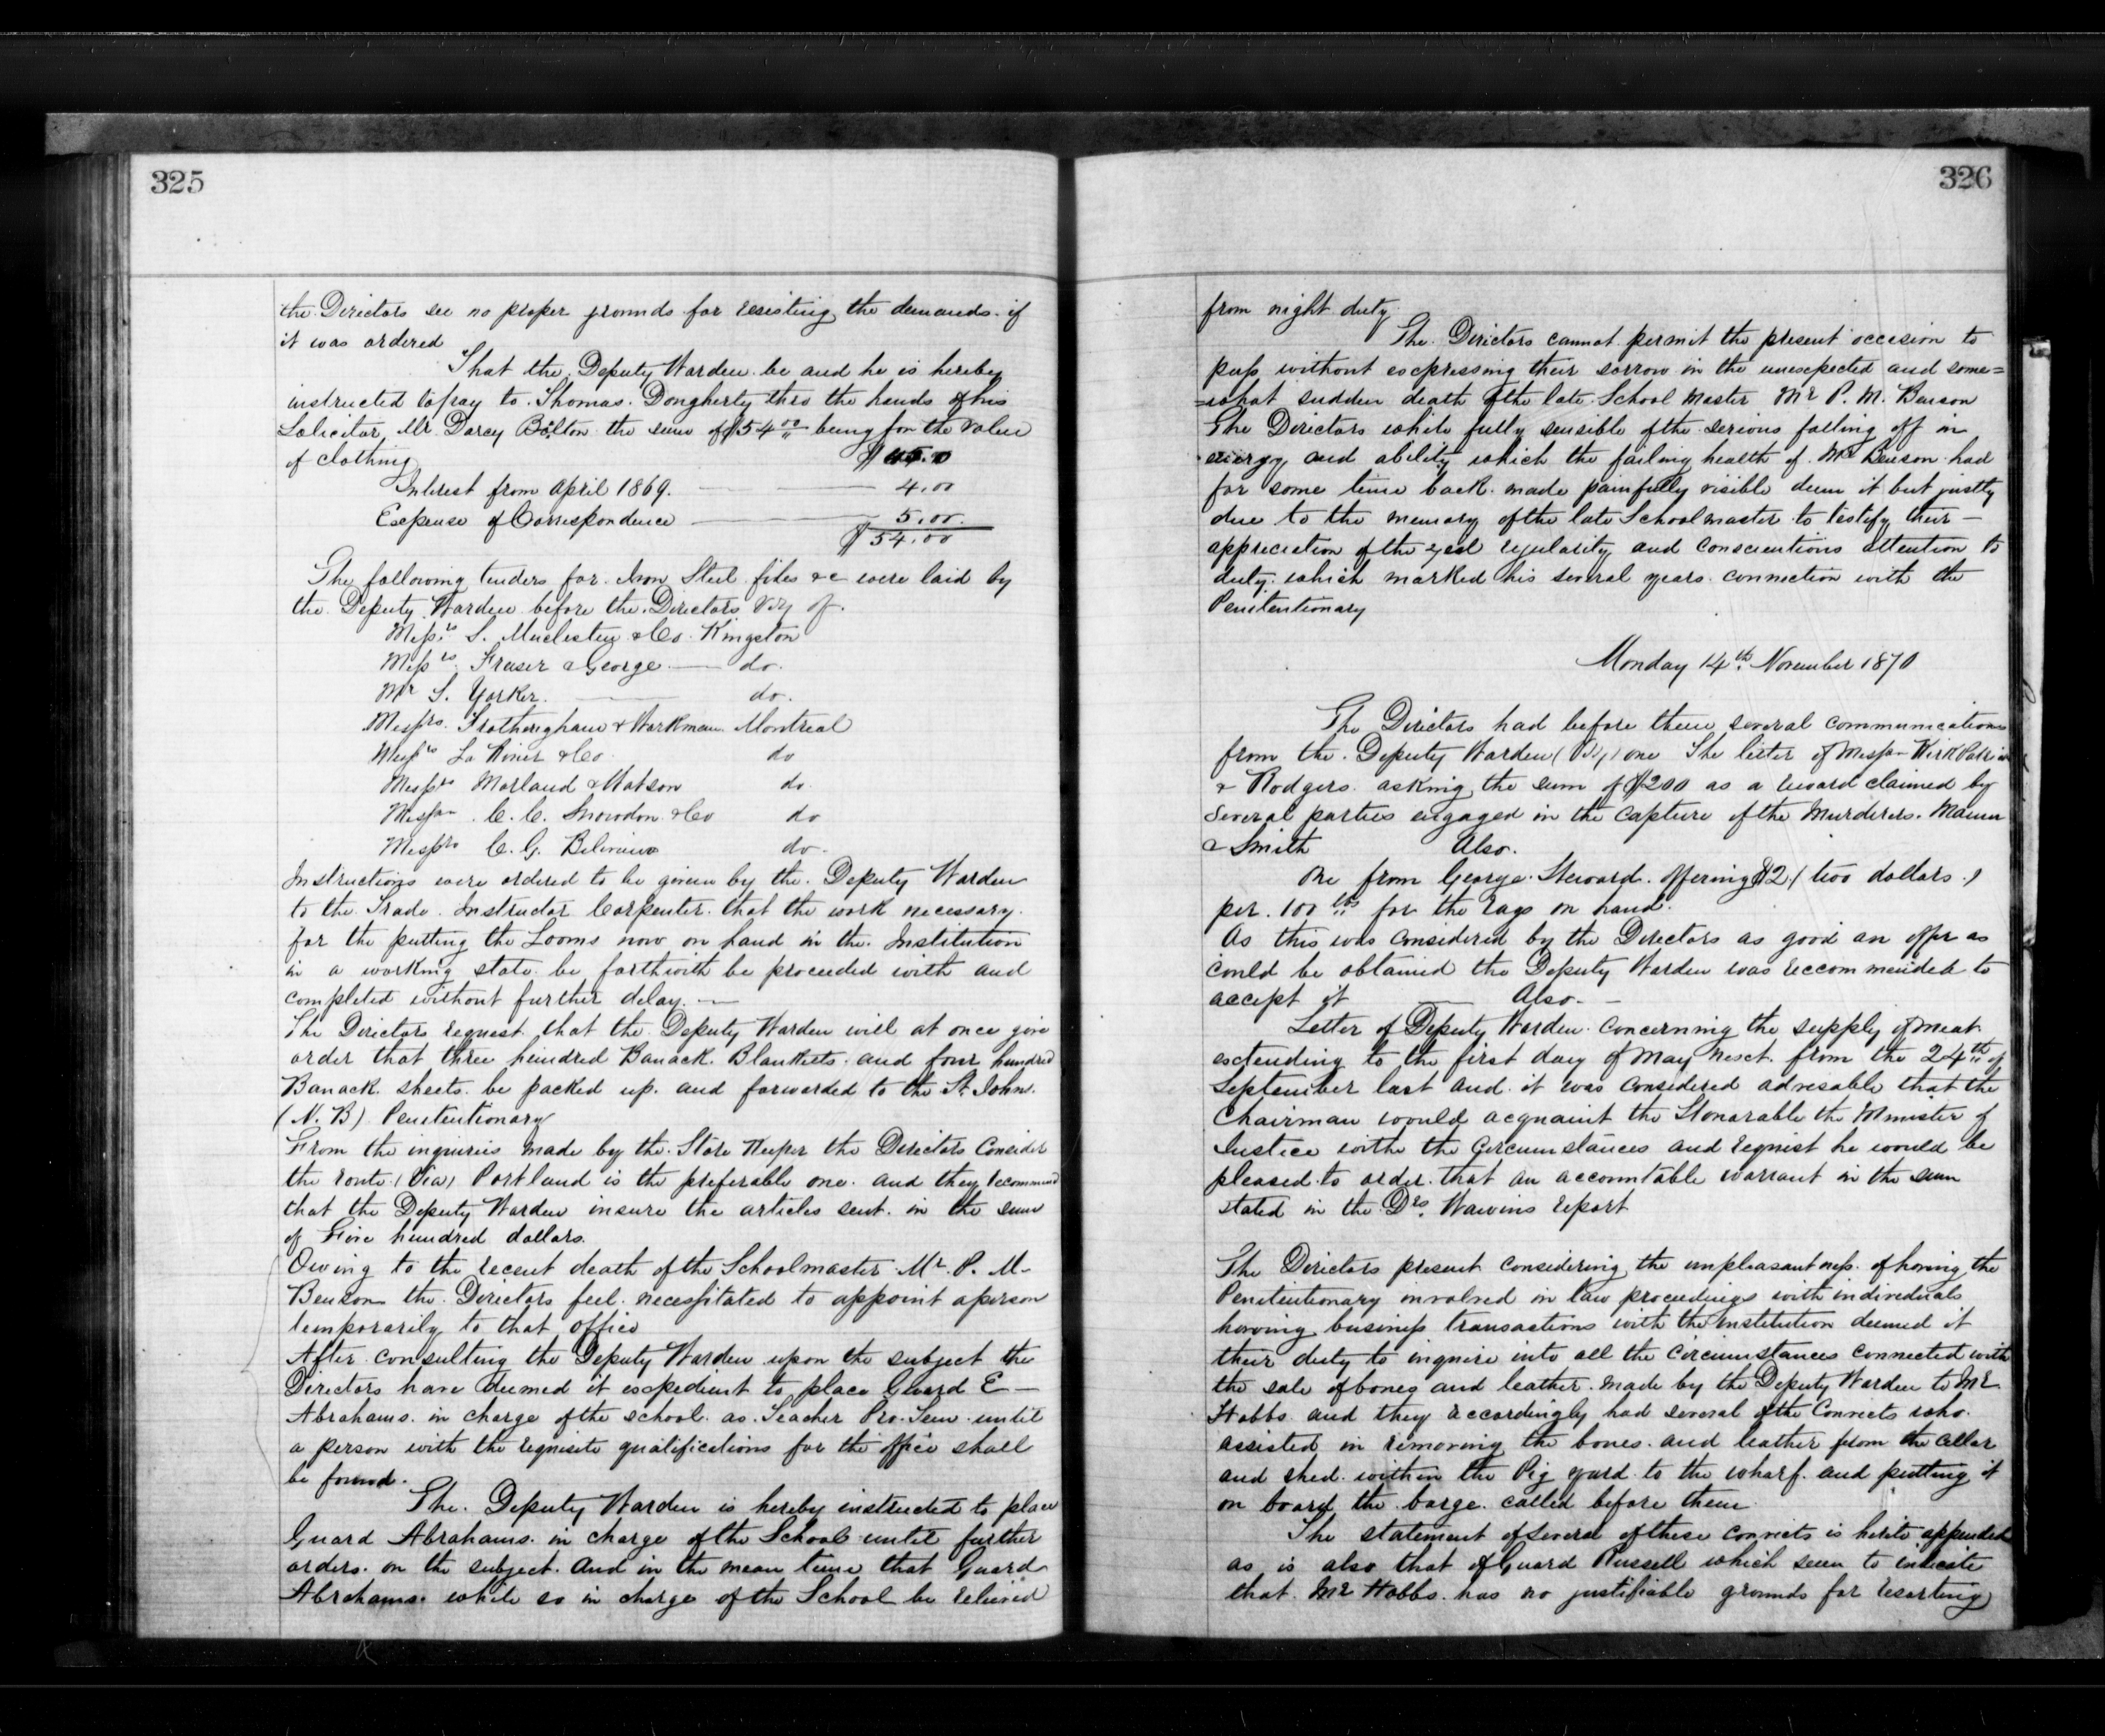 325
the Directors see no proper grounds for resisting the demands. if
it was ordered
That the Deputy Warden be and he is hereby
instructed to pay to Thomas Dougherty thro the hands of his
Solicitor, Mr. Darcy Bolton the sum of $54 00 being for the value
of clothing $ 45.0
Interest from April 1869. 4.00
Expense of Correspondence 5.00.
$ 54.00
The following tenders for Iron Steel files &c were laid by
the Deputy Warden before the Directors viz of.
Messrs S. Muckleston & Co. Kingston
Messrs Fraser & George do.
Mr S. Yorker. do.
Messrs. Frothingham & Workman Montreal
Messrs & Co. do
Messrs Morland & Watson do.
Messrs C. C. Snowdon & Co do
Messrs C. G. do.
Instructions were ordered to be given by the Deputy Warden
to the Trade Instructor Carpenter that the work necessary
for the putting the Looms now on hand in the Institution
in a working state be forthwith be proceeded with and
completed without further delay. —
The Directors request that the Deputy Warden will at once give
order that three hundred Banack Blankets and four hundred
Banack sheets be packed up and forwarded to the St. John.
(N. B) Penitentionary
From the inquiries made by the Store Keeper the Directors Consider
the route (Via) Portland is the preferable one and they recommend
that the Deputy Warden insure the articles sent in the sum
of Five hundred dollars.
Owing to the recent death of the Schoolmaster Mr. P. M.
Benson the Directors feel necessitated to appoint a person
temporarily to that office
After consulting the Deputy Warden upon the subject the
Directors have deemed it expedient to place Guard E —
Abrahams in charge of the school as Teacher Pro. Tem until
a person with the requisite qualifications for the office shall
be found.
The Deputy Warden is hereby instructed to place
Guard Abrahams in charge of the School until further
orders on the subject And in the mean time that Guard
Abrahams while so in charge of the School be relieved
326
from night duty
The Directors cannot permit the present occasion to
pass without expressing their sorrow in the unexpected and some=
=what sudden death of the late School Master Mr P. M. Benson
The Directors while fully sensible of the serious falling off in
energy and ability which the failing health of Mr Benson had
for some time back made painfully visible deem it but justly
due to the memory of the late Schoolmaster to testify their —
appreciation of the zeal regularity and conscientious attention to
duty which marked his several years connection with the
Penitentionary
Monday 14th November 1870
The Directors had before them several communications
from the Deputy Warden (Viz) one The letter of Messrs
& Rodgers asking the sum of $200 as a reward claimed by
several parties engaged in the capture of the Murderers. Mann
& Smith Also.
One from George Steward offering $2 (two dollars)
per 100 lbs for the rags on hand.
As this was considered by the Directors as good an offer as
could be obtained the Deputy Warden was reccommended to
accept it — Also. —
Letter of Deputy Warden Concerning the supply of meat
extending to the first day of May next from the 24th of
September last and it was considered advisable that the
Chairman would acquaint the Honorable the Minister of
Justice withe the Circumstances and request he would be
pleased to order that an accountable warrant in the sum
stated in the Report
The Directors present considering the unpleasantness of having the
Penitentionary involved in law proceedings with individuals
having business transactions with the Institution deemed it
their duty to inquire into all the circumstances connected with
the sale of bones and leather made by the Deputy Warden to Mr
Hobbs and they accordingly had several of the Convicts who
assisted in removing the bones and leather from the cellar
and shed within the Pig yard to the wharf and putting it
on board the barge called before them
The statement of several of these convicts is hereto appended
as is also that of Guard Russell which seem to indicate
that Mr Hobbs has no justifiable grounds for resorting